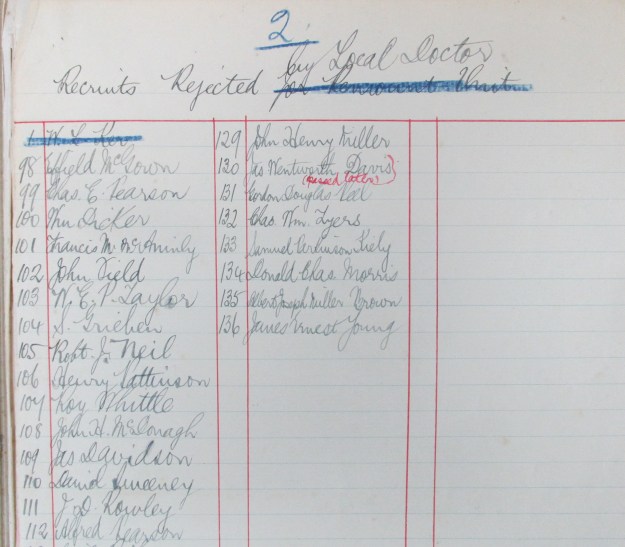 2
by Local Doctor
Recruits Rejected for Remount Unit
1 W. L. Ker
98 McGown
99 Chas. E. Pearson
100 Wm Dicker
101 Francis M.
102 John Field
103 W. E. P. Taylor
104 S. Grieben
105 Robt. J. Neil
106 Henry Pattinson
107 Roy Whittle
108 John H. McDonagh
109 Jas Davidson
110 David Sweeney
111 J. D. Rowley
112 Alfred Pearson
129 John Henry Miller
130 Jas Wentworth Davis
(passed later)
131 Gordon Douglas
132 Chas. Wm. Tyers
133 Samuel Kiely
134 Donald Chas. Morris
135 Albert Joseph Miller Brown
136 James Ernest Young